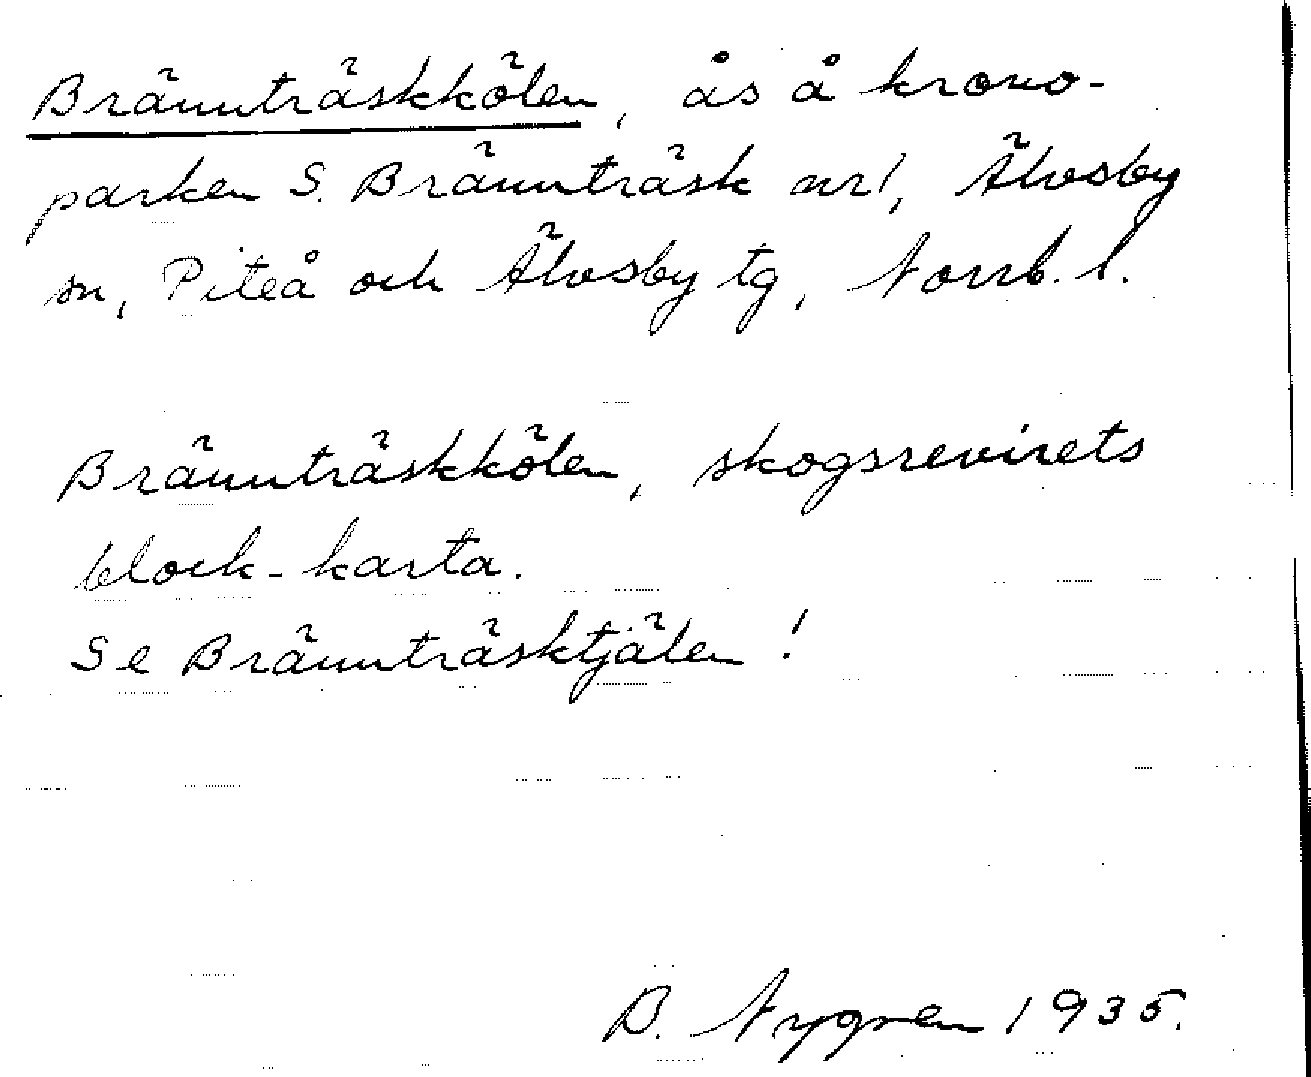 Brännträskkölen, ås å krono-
parken S. Brännträsk nr 1, Älvsby
sn, Piteå och Älvsby tg, Norrb. l.
Brännträskkölen, skogsrevirets
block-karta.
Se Brännträsktjälen!
B. Nygren 1935.